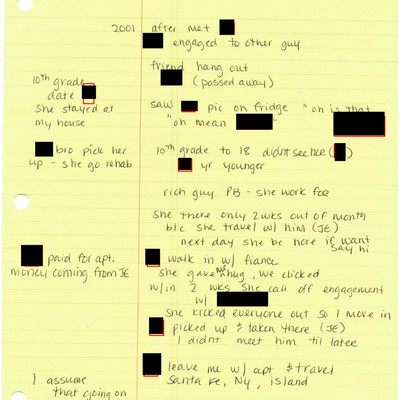 2001 after met
engaged to other guy
friend hang out
(passed away)
10th grade
date
She stayed at
my house
saw pic on fridge "oh is that
"oh mean "
bro pick her
up - she go rehab
10th grade to 18 didnt see her (
yr younger
rich guy PB - she work for
She there only 2 wks out of month
b/c she travel w/ him (JE)
next day she be here if want
say hi
paid for apt.
money coming from JE
walk in w/ fiance
she gave me hug, we clicked
w/in 2 wks she call off engagement
w/
She kicked everyone out so I move in
picked up & taken there (JE)
I didnt meet him til later
leave me w/ apt & travel
Santa Fe, NY, island
I assume
that going on